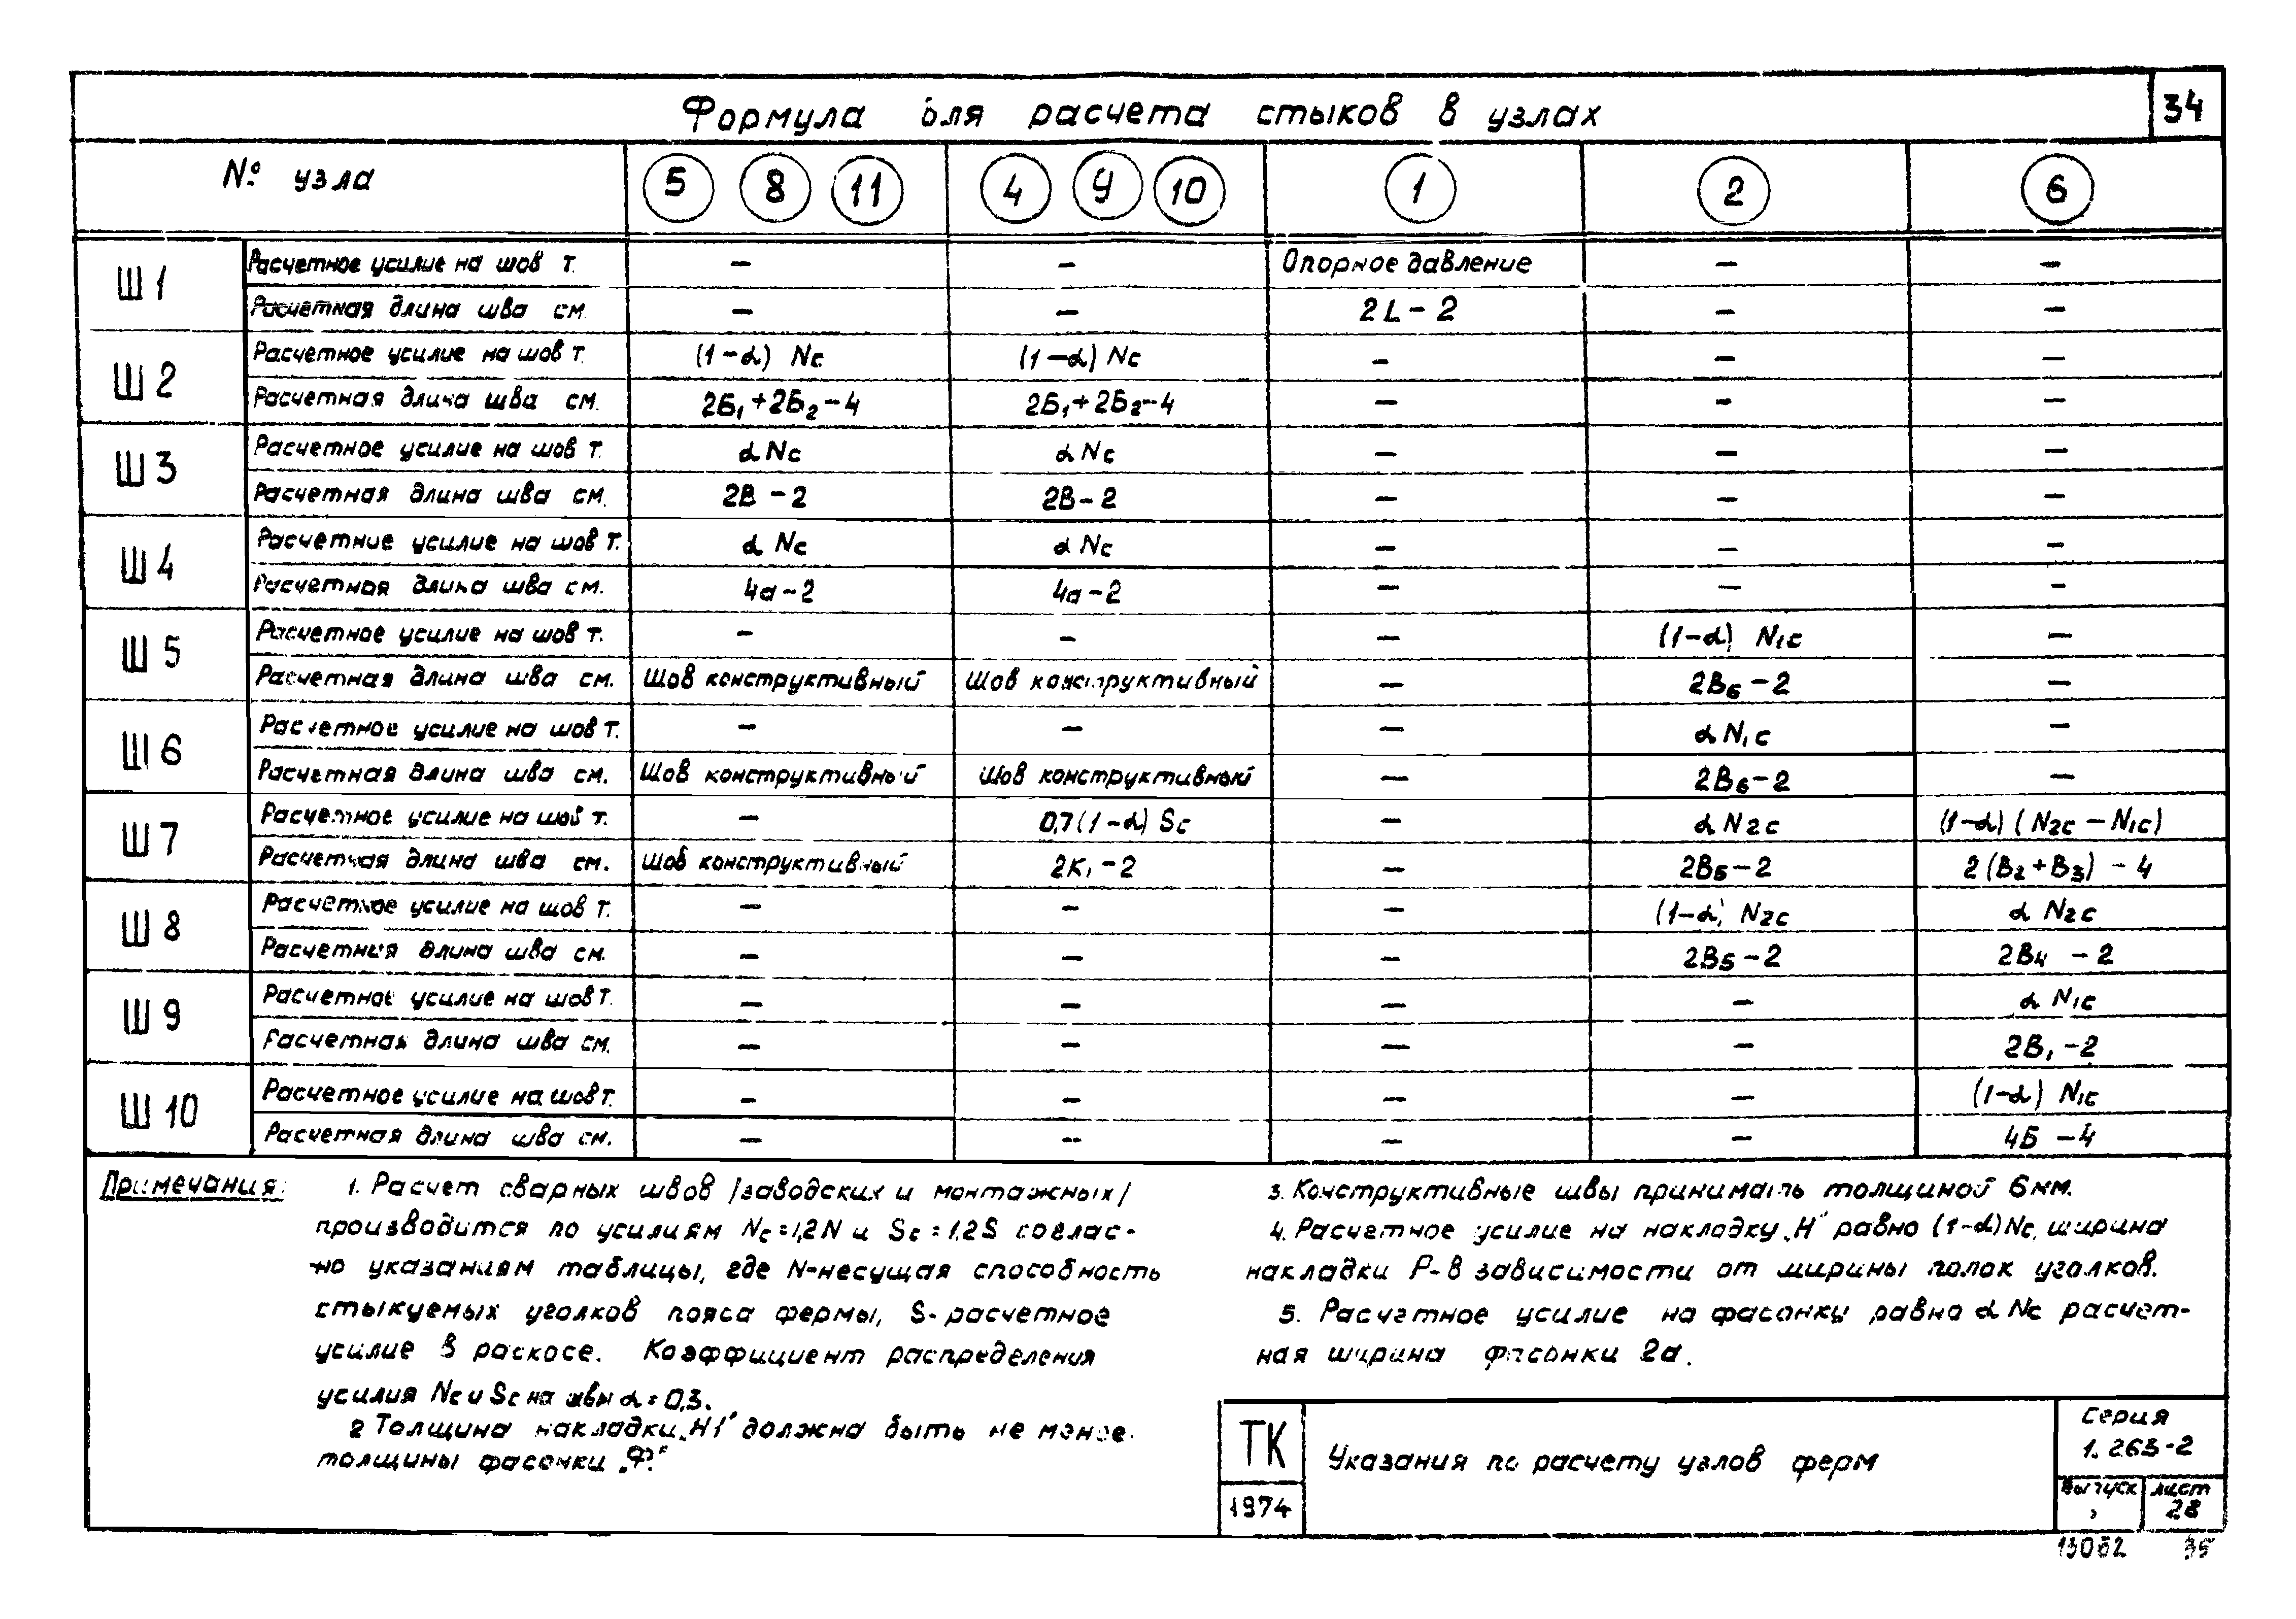 Формула для расчета стыков в узлах 34
№ узла 5 8 11 4 9 10 1 2 6
Ш1 Расчетное усилие на шов т. — — Опорное давление — —
Расчетная длина шва см — — 2L-2 — —
Ш2 Расчетное усилие на шов т. (1-α) Nc (1-α) Nc — — —
Расчетная длина шва см. 2Б₁+2Б₂-4 2Б₁+2Б₂-4 — — —
Ш3 Расчетное усилие на шов т. α Nc α Nc — — —
Расчетная длина шва см. 2В-2 2В-2 — — —
Ш4 Расчетние усилие на шов т. α Nc α Nc — — —
Расчетная длина шва см. 4а-2 4а-2 — — —
Ш5 Расчетное усилие на шов т. — — — (1-α) N₁c —
Расчетная длина шва см. Шов конструктивный Шов конструктивный — 2В₆-2 —
Ш6 Расчетное усилие на шов т. — — — α N₁c —
Расчетная длина шва см. Шов конструктивный Шов конструктивный — 2В₆-2 —
Ш7 Расчетное усилие на шов т. — 0,7(1-α) Sc — α N₂c (1-α) (N₂c-N₁c)
Расчетная длина шва см. Шов конструктивный 2К₁-2 — 2В₅-2 2(В₂+В₃)-4
Ш8 Расчетное усилие на шов т. — — — (1-α) N₂c α N₂c
Расчетная длина шва см. — — — 2В₅-2 2В₄-2
Ш9 Расчетное усилие на шов т. — — — — α N₁c
Расчетная длина шва см. — — — — 2В₁-2
Ш10 Расчетное усилие на шов т. — — — — (1-α) N₁c
Расчетная длина шва см. — — — — 4Б-4
Примечания: 1. Расчет сварных швов /заводских и монтажных/
производится по усилиям Nc=1,2N и Sc=1,2S соглас-
но указаниям таблицы, где N-несущая способность
стыкуемых уголков пояса фермы, S-расчетное
усилие в раскосе. Коэффициент распределения
усилия Nc и Sc на швы α=0,3.
2 Толщина накладки „Н1“ должна быть не менее
толщины фасонки „Ф.“
3. Конструктивные швы принимать толщиной 6мм.
4. Расчетное усилие на накладку „Н“ равно (1-α)Nc, ширина
накладки Р-в зависимости от ширины полок уголков.
5. Расчетное усилие на фасонку равно α Nc расчет-
ная ширина фасонки 2а.
ТК
1974
Указания по расчету узлов ферм
Серия
1.263-2
Выпуск лист
28
35